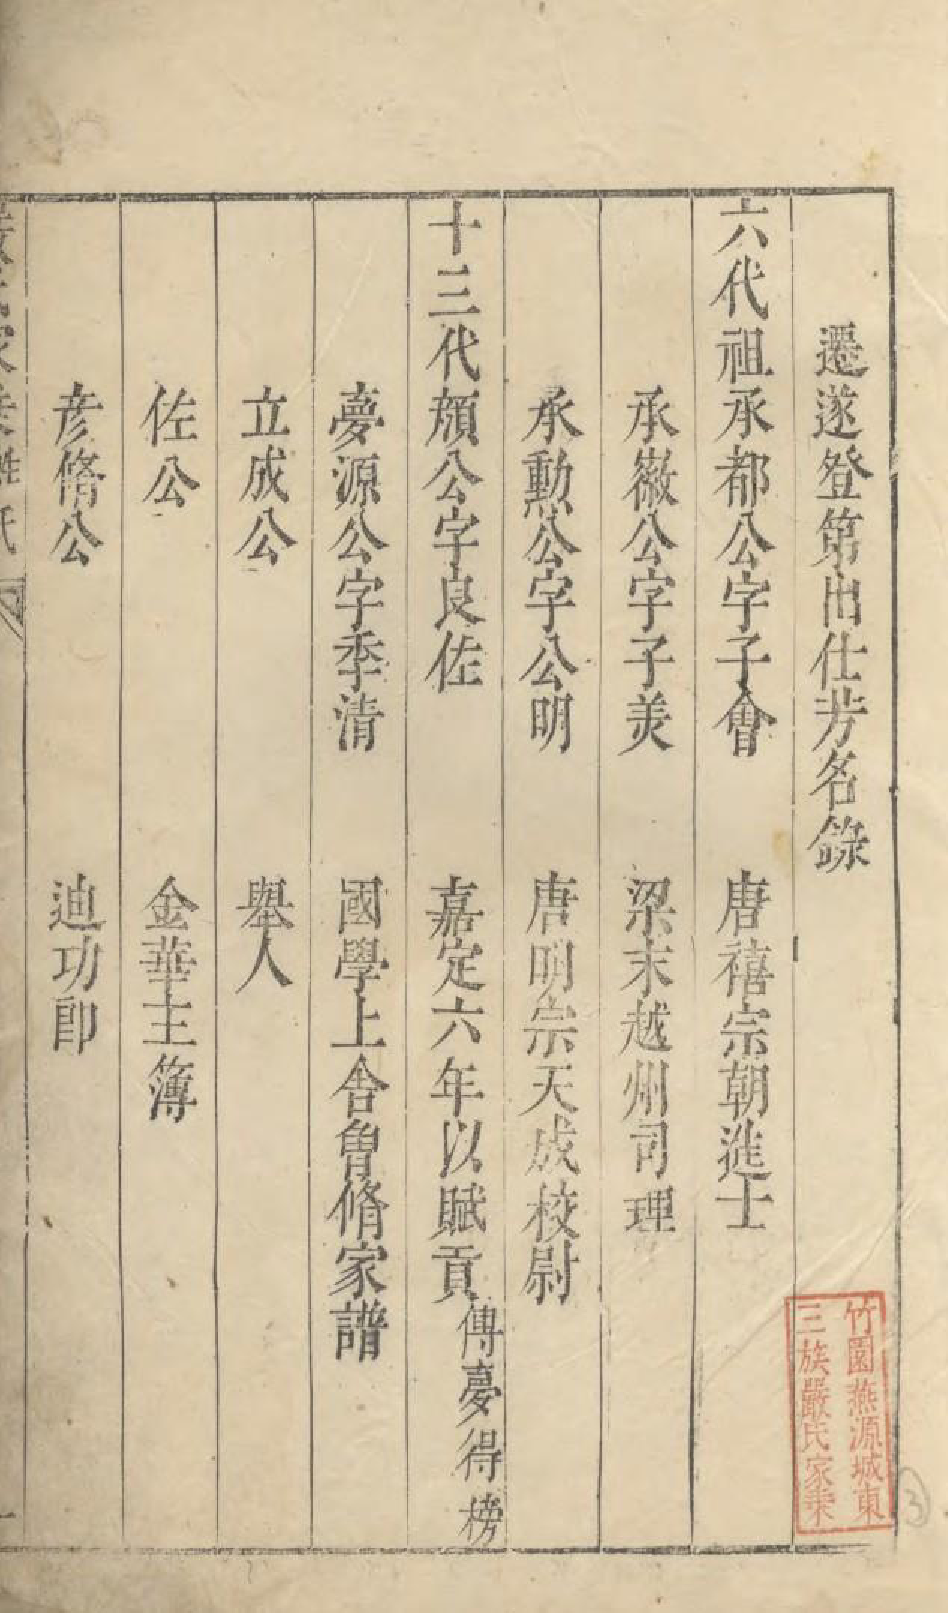 遷遂登第出仕芳名錄
六代祖承都公字子會 唐禧宗朝進士
承徽公字子美 梁末越州司理
承勳公字公明 唐明宗天成校尉
十三代頎公字良佐 嘉定六年以賦貢傳夢得榜
夢源公字季清 國學上舍曾脩家譜
立成公 舉人
佐公 金華主簿
彦脩公 迪功郎
氏
一
竹園燕源城東
三族嚴氏家乘
3